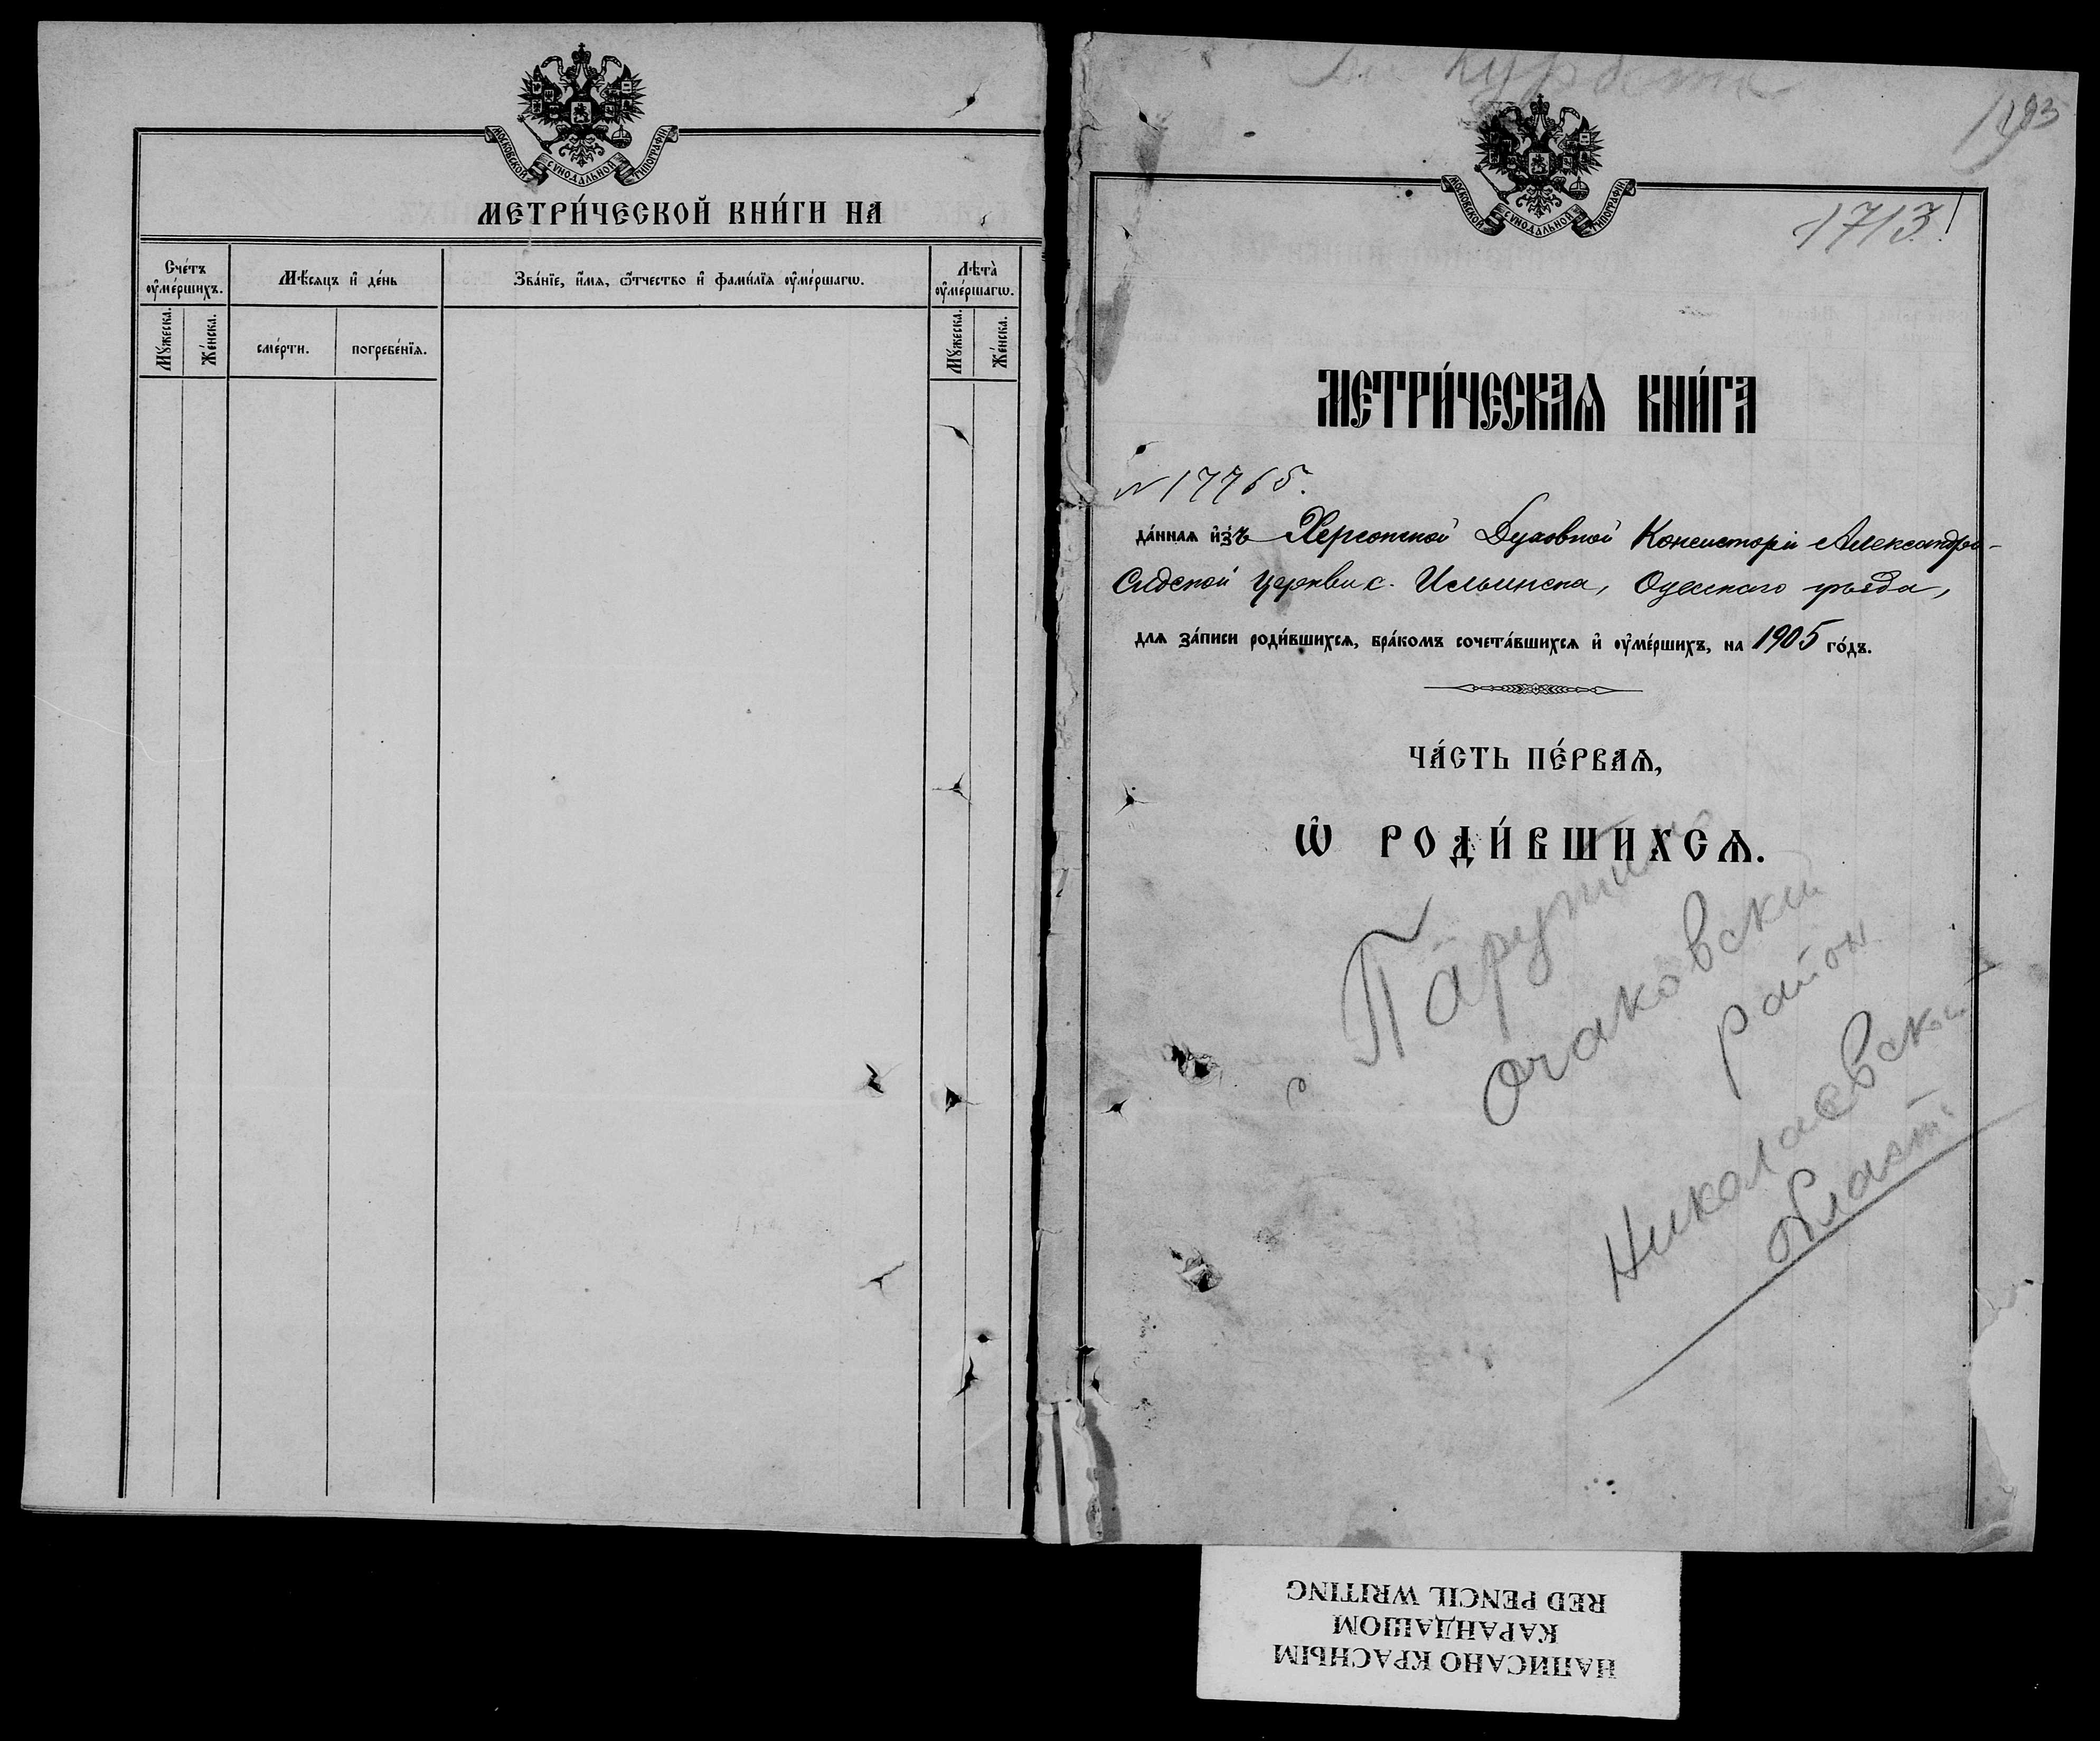 МОСКОВСКОЙ СѴНОДАЛЬНОЙ ТИПОГРАФІИ
МЕТРИ́ЧЕСКОЙ КНИ́ГИ НА
Сче́тъ ᲂу҆ме́ршихъ.
Мѣ́сяцъ и҆ де́нь
Зва́нїе, и҆́мѧ, ѿтчество и҆ фами́лїѧ ᲂу҆ме́ршагѡ.
Лѣта̀ ᲂу҆ме́ршагѡ.
Мꙋ́жеска.
Же́нска.
сме́рти.
погребе́нїѧ.
Мꙋ́жеска.
Же́нска.
193
МОСКОВСКОЙ СѴНОДАЛЬНОЙ ТИПОГРАФІИ
1713
МЕТРИ́ЧЕСКАѦ КНИ́ГА
N 17765.
да́ннаѧ и҆зъ Херсонской Духовной Консисторіи Александро-
Церкви с. Ильинска, Одесскаго уѣзда,
длѧ за́писи роди́вшихсѧ, бра́комъ сочета́вшихсѧ и҆ ᲂу҆ме́ршихъ, на 1905 го́дъ.
ЧА́СТЬ ПЕ́РВАѦ,
Ѡ҆ РОДИ́ВШИХСѦ.
с Парутино
Очаковский
район
Николаевской
области
НАПИСАНО КРАСНЫМ
КАРАНДАШОМ
RED PENCIL WRITING